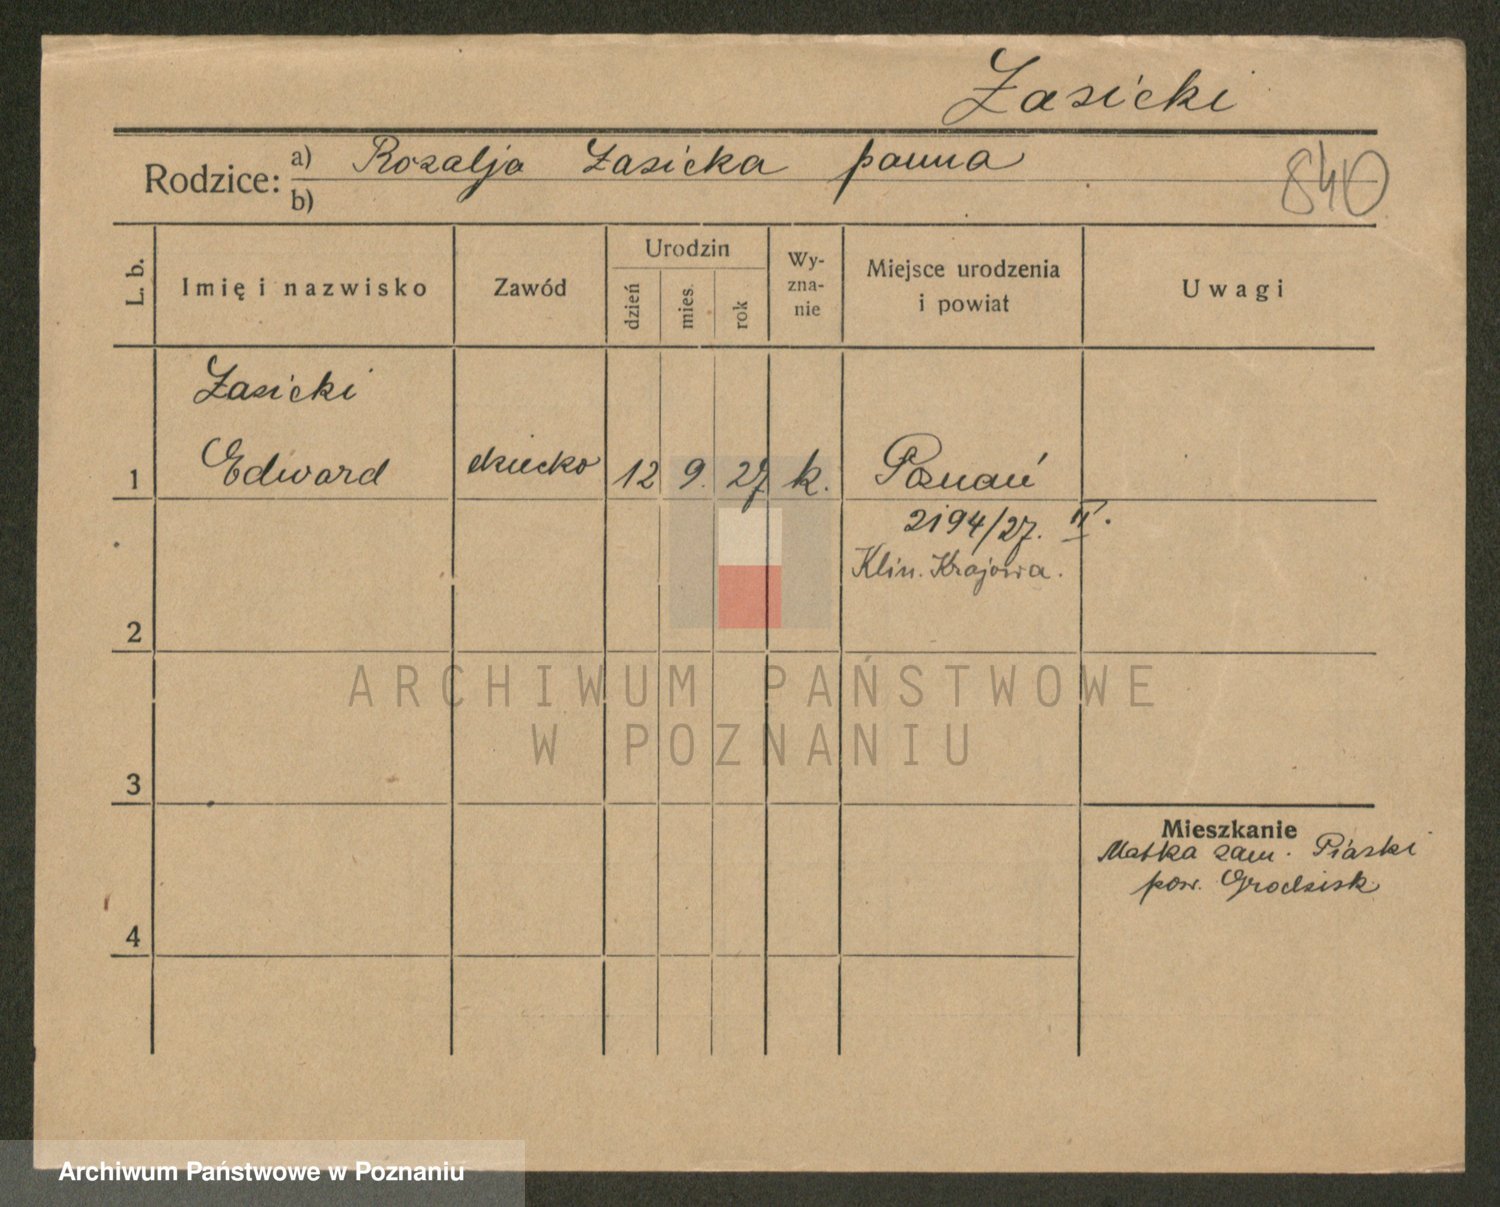 Łasicki
Rodzice: a) Rozalja Łasicka panna
b)
840
L. b.
Imię i nazwisko
Zawód
Urodzin
dzień
mies.
rok
Wy-
zna-
nie
Miejsce urodzenia
i powiat
Uwagi
Łasicki
1 Edward dziecko 12 9. 27 k. Poznań
2194/27. II.
Klin. Krajowa.
2
3
Mieszkanie
Matka zam. Piaski
pow. Grodzisk
4
ARCHIWUM PAŃSTWOWE
W POZNANIU
Archiwum Państwowe w Poznaniu